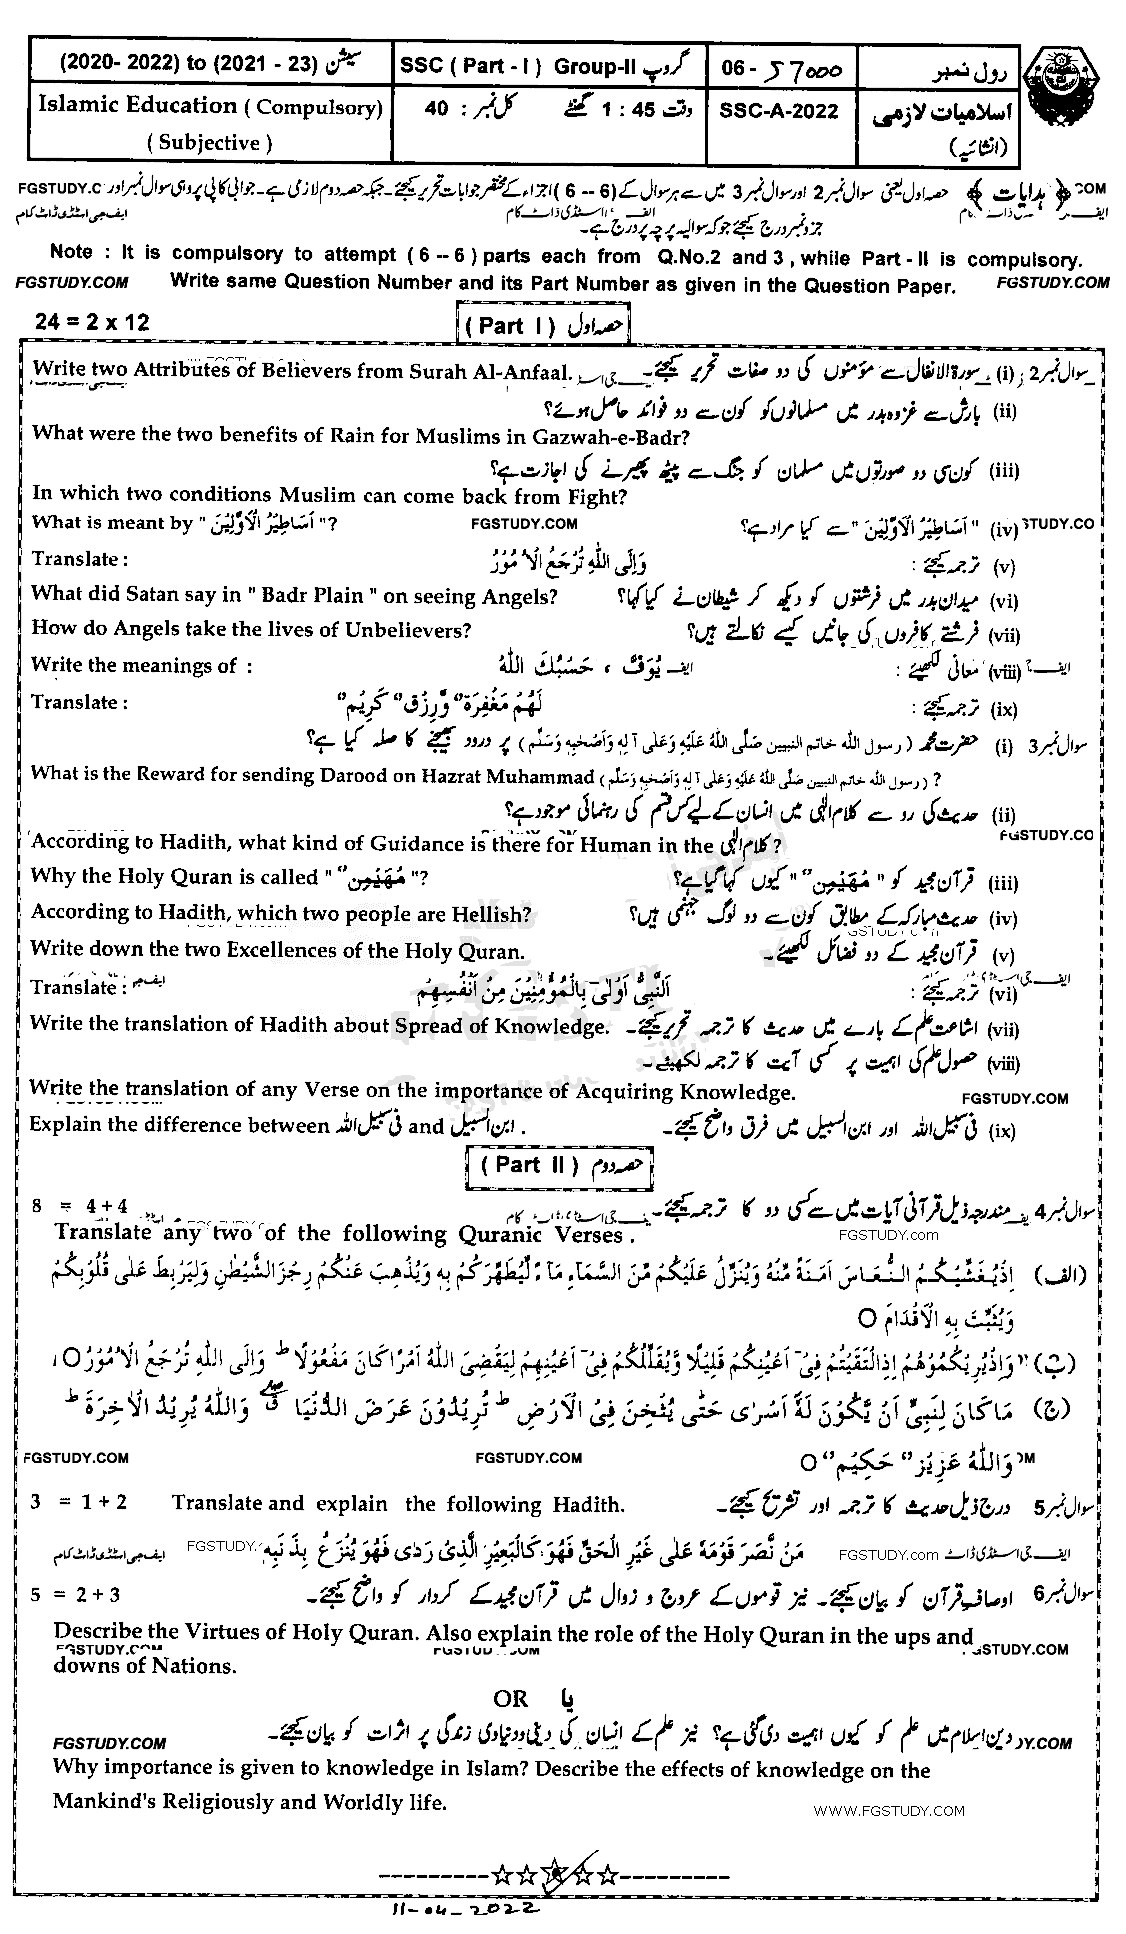 (2020- 2022) to (2021 - 23) سیشن
SSC ( Part - I ) Group-II گروپ
06 - 57000
رول نمبر
Islamic Education ( Compulsory)
( Subjective )
کل نمبر : 40
وقت 1 : 45 گھنٹے
SSC-A-2022
اسلامیات لازمی
(انشائیہ)
﴿ ہدایات ﴾ حصہ اول یعنی سوال نمبر 2 اور سوال نمبر 3 میں سے ہر سوال کے (6 -- 6) اجزاء کے مختصر جوابات تحریر کیجئے۔ جبکہ حصہ دوم لازمی ہے۔ جوابی کاپی پر وہی سوال نمبر اور
FGSTUDY.C
COM
ایف جی اسٹڈی ڈاٹ کام
جزو نمبر درج کیجئے جو کہ سوالیہ پرچہ پر درج ہے۔
Note : It is compulsory to attempt ( 6 -- 6 ) parts each from Q.No.2 and 3 , while Part - II is compulsory.
FGSTUDY.COM Write same Question Number and its Part Number as given in the Question Paper. FGSTUDY.COM
24 = 2 x 12
( Part I ) حصہ اول
Write two Attributes of Believers from Surah Al-Anfaal. سوال نمبر 2 (i) سورۃ الانفال سے مؤمنوں کی دو صفات تحریر کیجئے۔
(ii) بارش سے غزوہ بدر میں مسلمانوں کو کون سے دو فوائد حاصل ہوئے؟
What were the two benefits of Rain for Muslims in Gazwah-e-Badr?
(iii) کون سی دو صورتوں میں مسلمان کو جنگ سے پیٹھ پھیرنے کی اجازت ہے؟
In which two conditions Muslim can come back from Fight?
What is meant by " اَسَاطِیْرُ الْاَوَّلِیْنَ "? FGSTUDY.COM (iv) " اَسَاطِیْرُ الْاَوَّلِیْنَ " سے کیا مراد ہے؟ TUDY.CO
Translate : وَاِلَی اللّٰہِ تُرْجَعُ الْاُمُوْرُ (v) ترجمہ کیجئے :
What did Satan say in " Badr Plain " on seeing Angels? (vi) میدان بدر میں فرشتوں کو دیکھ کر شیطان نے کیا کہا؟
How do Angels take the lives of Unbelievers? (vii) فرشتے کافروں کی جانیں کیسے نکالتے ہیں؟
Write the meanings of : یُوَفَّ ، حَسْبُکَ اللّٰہُ (viii) معانی لکھیئے :
Translate : لَھُمْ مَغْفِرَۃٌ وَّرِزْقٌ کَرِیْمٌ (ix) ترجمہ کیجئے :
سوال نمبر 3 (i) حضرت محمد ( رسول اللہ خاتم النبیین صَلَّی اللہُ عَلَیْہِ وَعَلٰی آلِہٖ وَاَصْحَابِہٖ وَسَلَّم ) پر درود بھیجنے کا صلہ کیا ہے؟
What is the Reward for sending Darood on Hazrat Muhammad ( رسول اللہ خاتم النبیین صَلَّی اللہُ عَلَیْہِ وَعَلٰی آلِہٖ وَاَصْحَابِہٖ وَسَلَّم ) ?
(ii) حدیث کی رو سے کلام الٰہی میں انسان کے لیے کس قسم کی رہنمائی موجود ہے؟
According to Hadith, what kind of Guidance is there for Human in the کلام الٰہی ? FGSTUDY.CO
Why the Holy Quran is called " مُھَیْمِنٌ "? (iii) قرآن مجید کو " مُھَیْمِنٌ " کیوں کہا گیا ہے؟
According to Hadith, which two people are Hellish? (iv) حدیث مبارکہ کے مطابق کون سے دو لوگ جہنمی ہیں؟
Write down the two Excellences of the Holy Quran. (v) قرآن مجید کے دو فضائل لکھیئے۔
Translate : اَلنَّبِیُّ اَوْلٰی بِالْمُؤْمِنِیْنَ مِنْ اَنْفُسِھِمْ (vi) ترجمہ کیجئے :
Write the translation of Hadith about Spread of Knowledge. (vii) اشاعت علم کے بارے میں حدیث کا ترجمہ تحریر کیجئے۔
(viii) حصول علم کی اہمیت پر کسی آیت کا ترجمہ لکھیئے۔
Write the translation of any Verse on the importance of Acquiring Knowledge. FGSTUDY.COM
Explain the difference between فی سبیل اللہ and ابن السبیل . (ix) فی سبیل اللہ اور ابن السبیل میں فرق واضح کیجئے۔
( Part II ) حصہ دوم
8 = 4 + 4 سوال نمبر 4 مندرجہ ذیل قرآنی آیات میں سے کسی دو کا ترجمہ کیجئے۔
Translate any two of the following Quranic Verses . FGSTUDY.com
(الف) اِذْ یُغَشِّیْکُمُ النُّعَاسَ اَمَنَۃً مِّنْہُ وَیُنَزِّلُ عَلَیْکُمْ مِّنَ السَّمَآءِ مَآءً لِّیُطَھِّرَکُمْ بِہٖ وَیُذْھِبَ عَنْکُمْ رِجْزَ الشَّیْطٰنِ وَلِیَرْبِطَ عَلٰی قُلُوْبِکُمْ
وَیُثَبِّتَ بِہِ الْاَقْدَامَ O
(ب) وَاِذْ یُرِیْکُمُوْھُمْ اِذِ الْتَقَیْتُمْ فِیْٓ اَعْیُنِکُمْ قَلِیْلًا وَّیُقَلِّلُکُمْ فِیْٓ اَعْیُنِھِمْ لِیَقْضِیَ اللّٰہُ اَمْرًا کَانَ مَفْعُوْلًا ط وَاِلَی اللّٰہِ تُرْجَعُ الْاُمُوْرُ O
(ج) مَا کَانَ لِنَبِیٍّ اَنْ یَّکُوْنَ لَہٗٓ اَسْرٰی حَتّٰی یُثْخِنَ فِی الْاَرْضِ ط تُرِیْدُوْنَ عَرَضَ الدُّنْیَا وَاللّٰہُ یُرِیْدُ الْاٰخِرَۃَ ط
FGSTUDY.COM FGSTUDY.COM وَاللّٰہُ عَزِیْزٌ حَکِیْمٌ O
3 = 1 + 2 Translate and explain the following Hadith. سوال نمبر 5 درج ذیل حدیث کا ترجمہ اور تشریح کیجئے۔
ایف جی اسٹڈی ڈاٹ کام FGSTUDY. مَنْ نَّصَرَ قَوْمَہٗ عَلٰی غَیْرِ الْحَقِّ فَھُوَ کَالْبَعِیْرِ الَّذِیْ رَدٰی فَھُوَ یُنْزَعُ بِذَنَبِہٖ FGSTUDY.com ایف جی اسٹڈی ڈاٹ
5 = 2 + 3 سوال نمبر 6 اوصاف قرآن کو بیان کیجئے۔ نیز قوموں کے عروج و زوال میں قرآن مجید کے کردار کو واضح کیجئے۔
Describe the Virtues of Holy Quran. Also explain the role of the Holy Quran in the ups and
downs of Nations.
OR یا
FGSTUDY.COM دین اسلام میں علم کو کیوں اہمیت دی گئی ہے؟ نیز علم کے انسان کی دینی و دنیاوی زندگی پر اثرات کو بیان کیجئے۔ DY.COM
Why importance is given to knowledge in Islam? Describe the effects of knowledge on the
Mankind's Religiously and Worldly life.
WWW.FGSTUDY.COM
11-04-2022